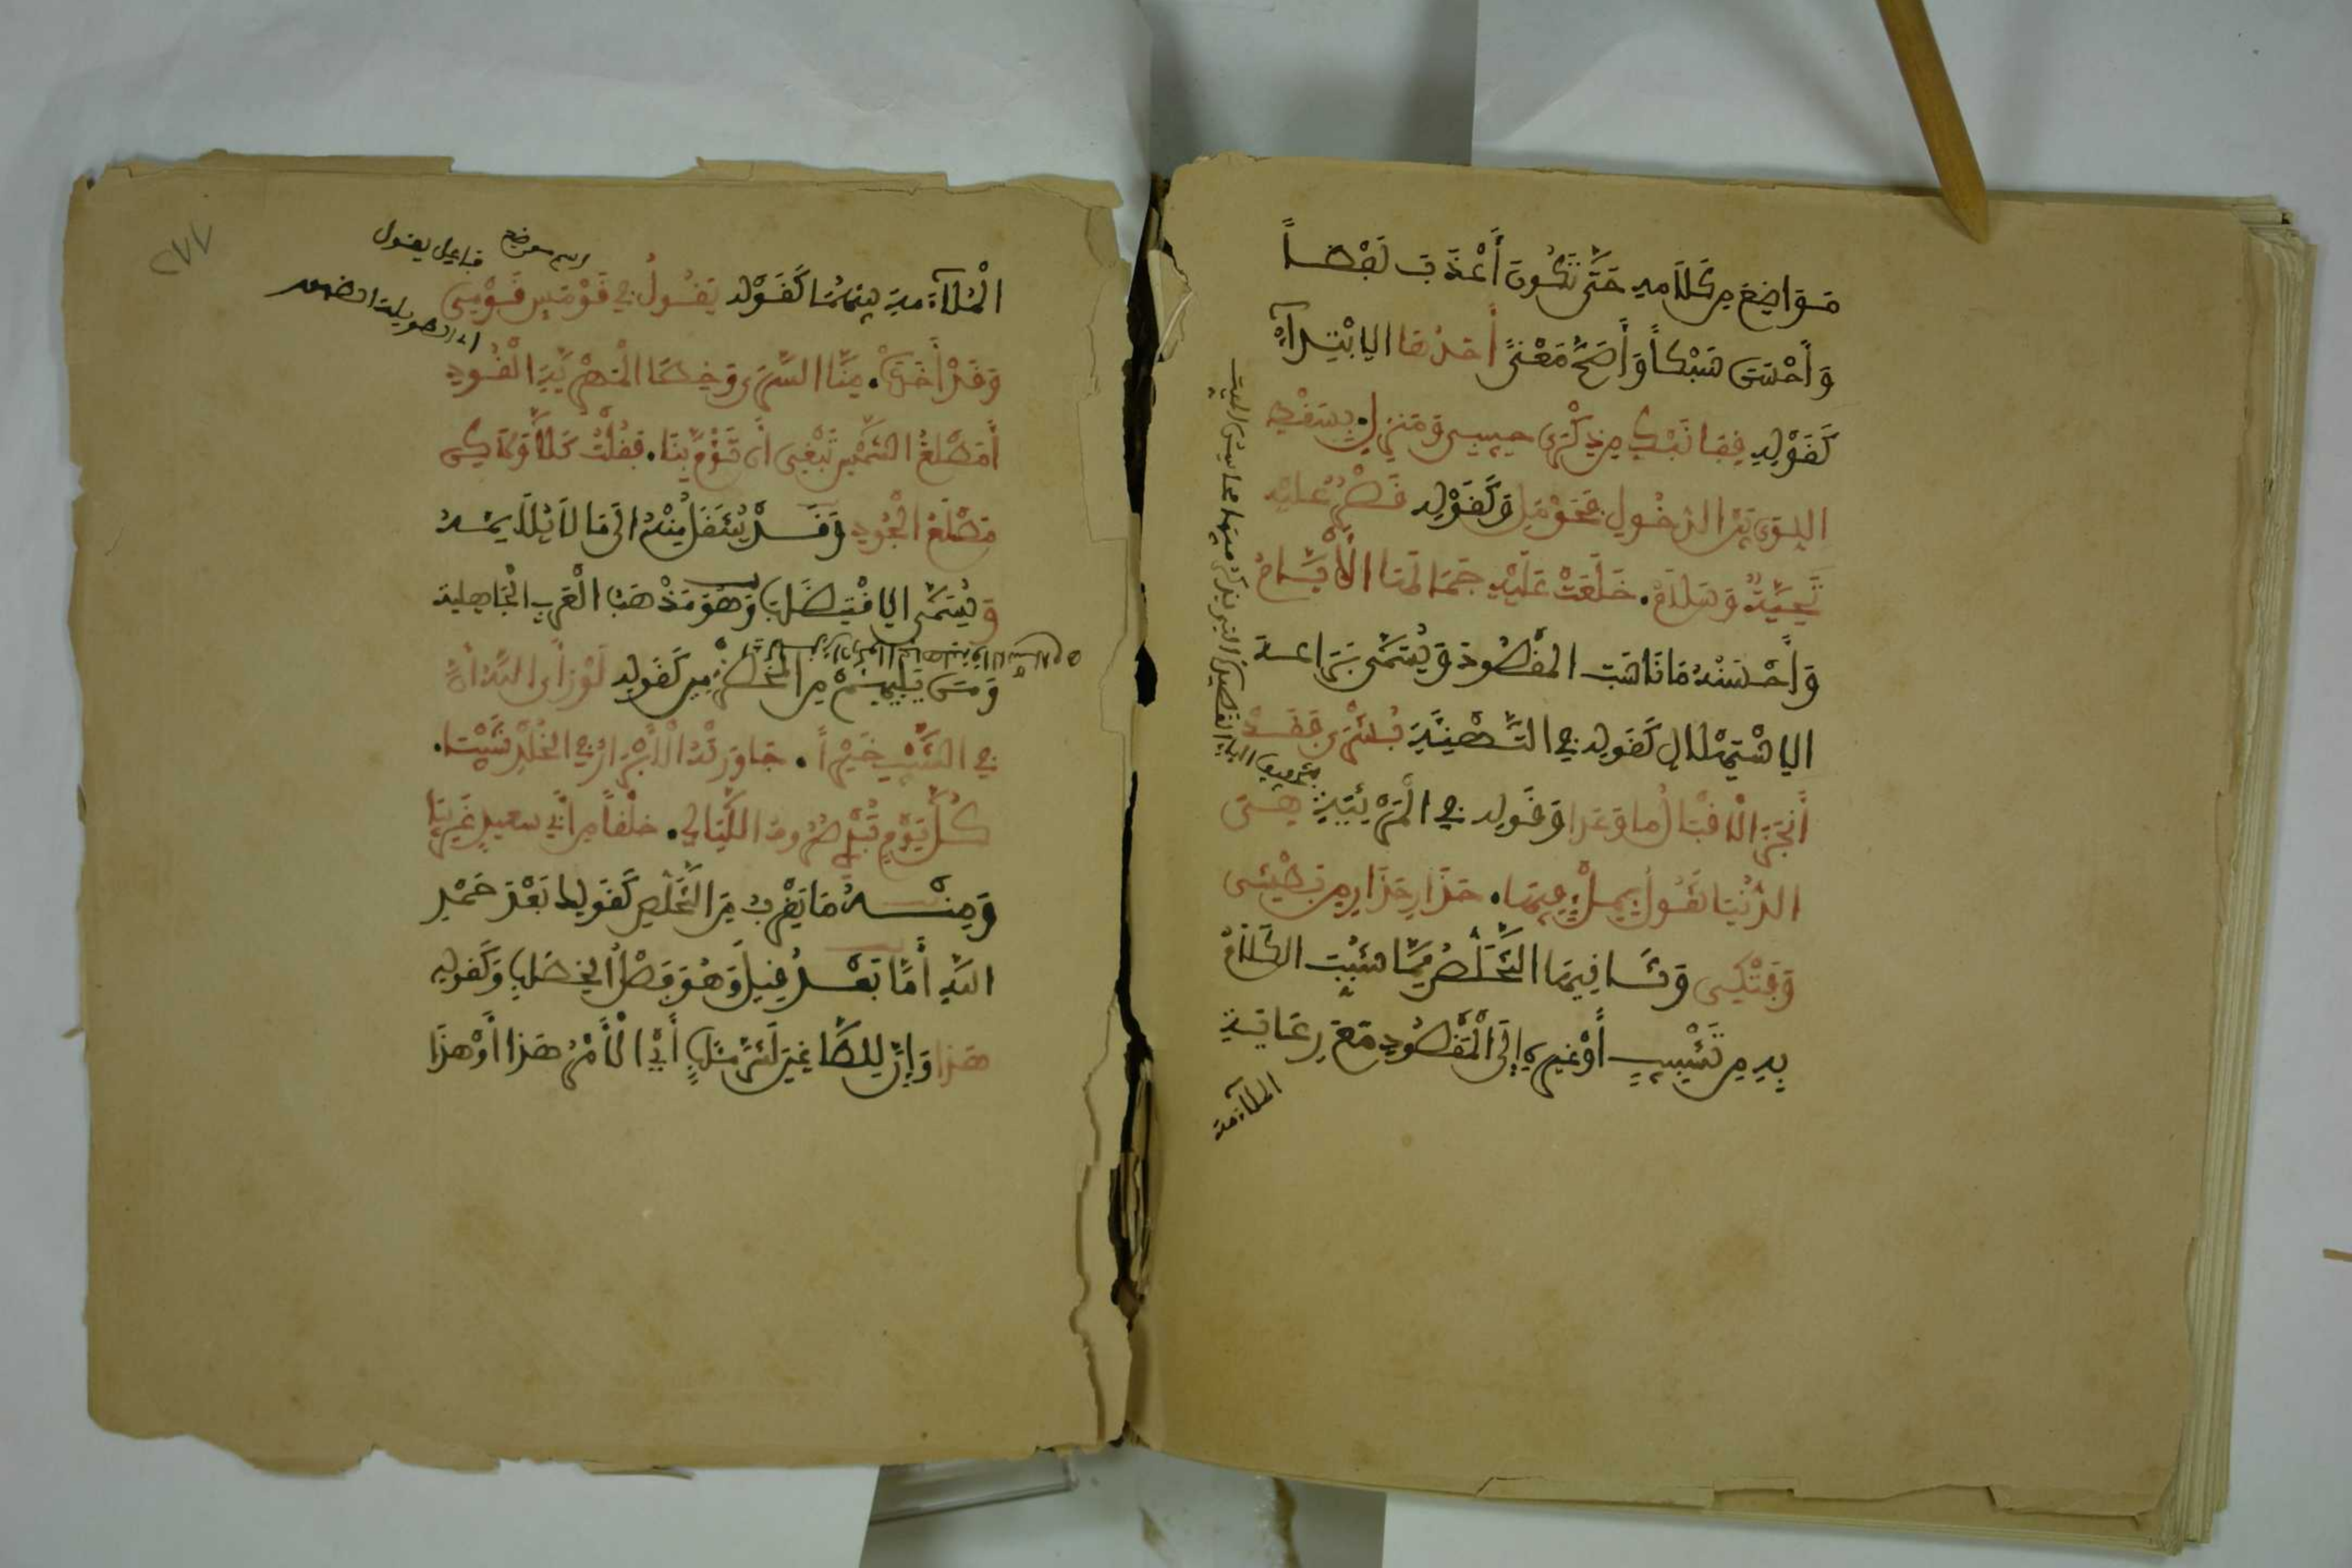 مَوَاضِعَ مِن كَلَامِهِ حَتَّى تَكُونَ أَعْذَبَ لَفْظاً
وَأَحْسَنَ سَبْكاً وَأَصَحَّ مَعْنىً أَحَدُهَا الِابْتِدَآءُ
كَقَوْلِهِ قِفَا نَبْكِ مِن ذِكْرَى حَبِيبٍ وَمَنْزِلِ. بِسَقْطِ
اللِّوَى بَيْنَ الدَّخُولِ فَحَوْمَلِ وَكَقَوْلِهِ قَصْرٌ عَلَيْهِ
تَحِيَّةٌ وَسَلَامُ. خَلَعَتْ عَلَيْهِ جَمَالَهَا الْأَيَّامُ
وَأَحْسَنُهُ مَا نَاسَبَ الْمَقْصُودَ وَيُسَمَّى بَرَاعَةَ
الِاسْتِهْلَالِ كَقَوْلِهِ فِي التَّهْنِيَةِ بُشْرَى فَقَدْ
أَنْجَزَ الْإِقْبَالُ مَا وَعَدَا وَقَوْلِهِ فِي الْمَرْثِيَةِ هِيَ
الدُّنْيَا تَقُولُ بِمِلْءِ فِيهَا. حَذَارِ حَذَارِ مِن بَطْشِي
وَفَتْكِي وَثَانِيهَا التَّخَلُّصُ مِمَّا شُبِّبَ الْكَلَامُ
بِهِ مِن تَشْبِيبٍ أَوْ غَيْرِهِ إِلَى الْمَقْصُودِ مَعَ رِعَايَةِ
الملآءمة
٢٧٧
اسم موضع
فاعل يقول
الْمُلَآءَمَةِ بَيْنَهُمَا كَقَوْلِهِ يَقُولُ فِي قَوْمَسٍ قَوْمِي
وَقَدْ أَخَذَتْ. مِنَّا السُّرَى وَخُطَا الْمَهْرِيَّةِ الْقُودِ
أَمَطْلَعَ الشَّمْسِ تَبْغِي أَن تَؤُمَّ بِنَا. فَقُلْتُ كَلَّا وَلَكِن
مَطْلَعَ الْجُودِ وَقَدْ يُنْتَقَلُ مِنْهُ إِلَى مَا لَا يُلَايِمُهُ
وَيُسَمَّى الِاقْتِضَابَ وَهُوَ مَذْهَبُ الْعَرَبِ الْجَاهِلِيَّةِ
وَمَن يَلِيهِمْ مِنَ الْمُخَضْرَمِينَ كَقَوْلِهِ لَوْ رَأَى اللهُ أَنَّ
فِي الشَّيْبِ خَيْراً. جَاوَرَتْهُ الْأَبْرَارُ فِي الْخُلْدِ شَيْبَا.
كُلَّ يَوْمٍ تُبْدِي صُرُوفُ اللَّيَالِي. خُلْقاً مِن أَبِي سَعِيدٍ غَرِيبَا
وَمِنْهُ مَا يَقْرُبُ مِنَ التَّخَلُّصِ كَقَوْلِهِ بَعْدَ حَمْدِ
اللهِ أَمَّا بَعْدُ قِيلَ وَهُوَ فَصْلُ الْخِطَابِ وَكَقَوْلِهِ
هَذَا وَإِنَّ لِلطَّاغِينَ لَشَرَّ مَئَابٍ أَيِ الْأَمْرُ هَذَا أَوْ هَذَا